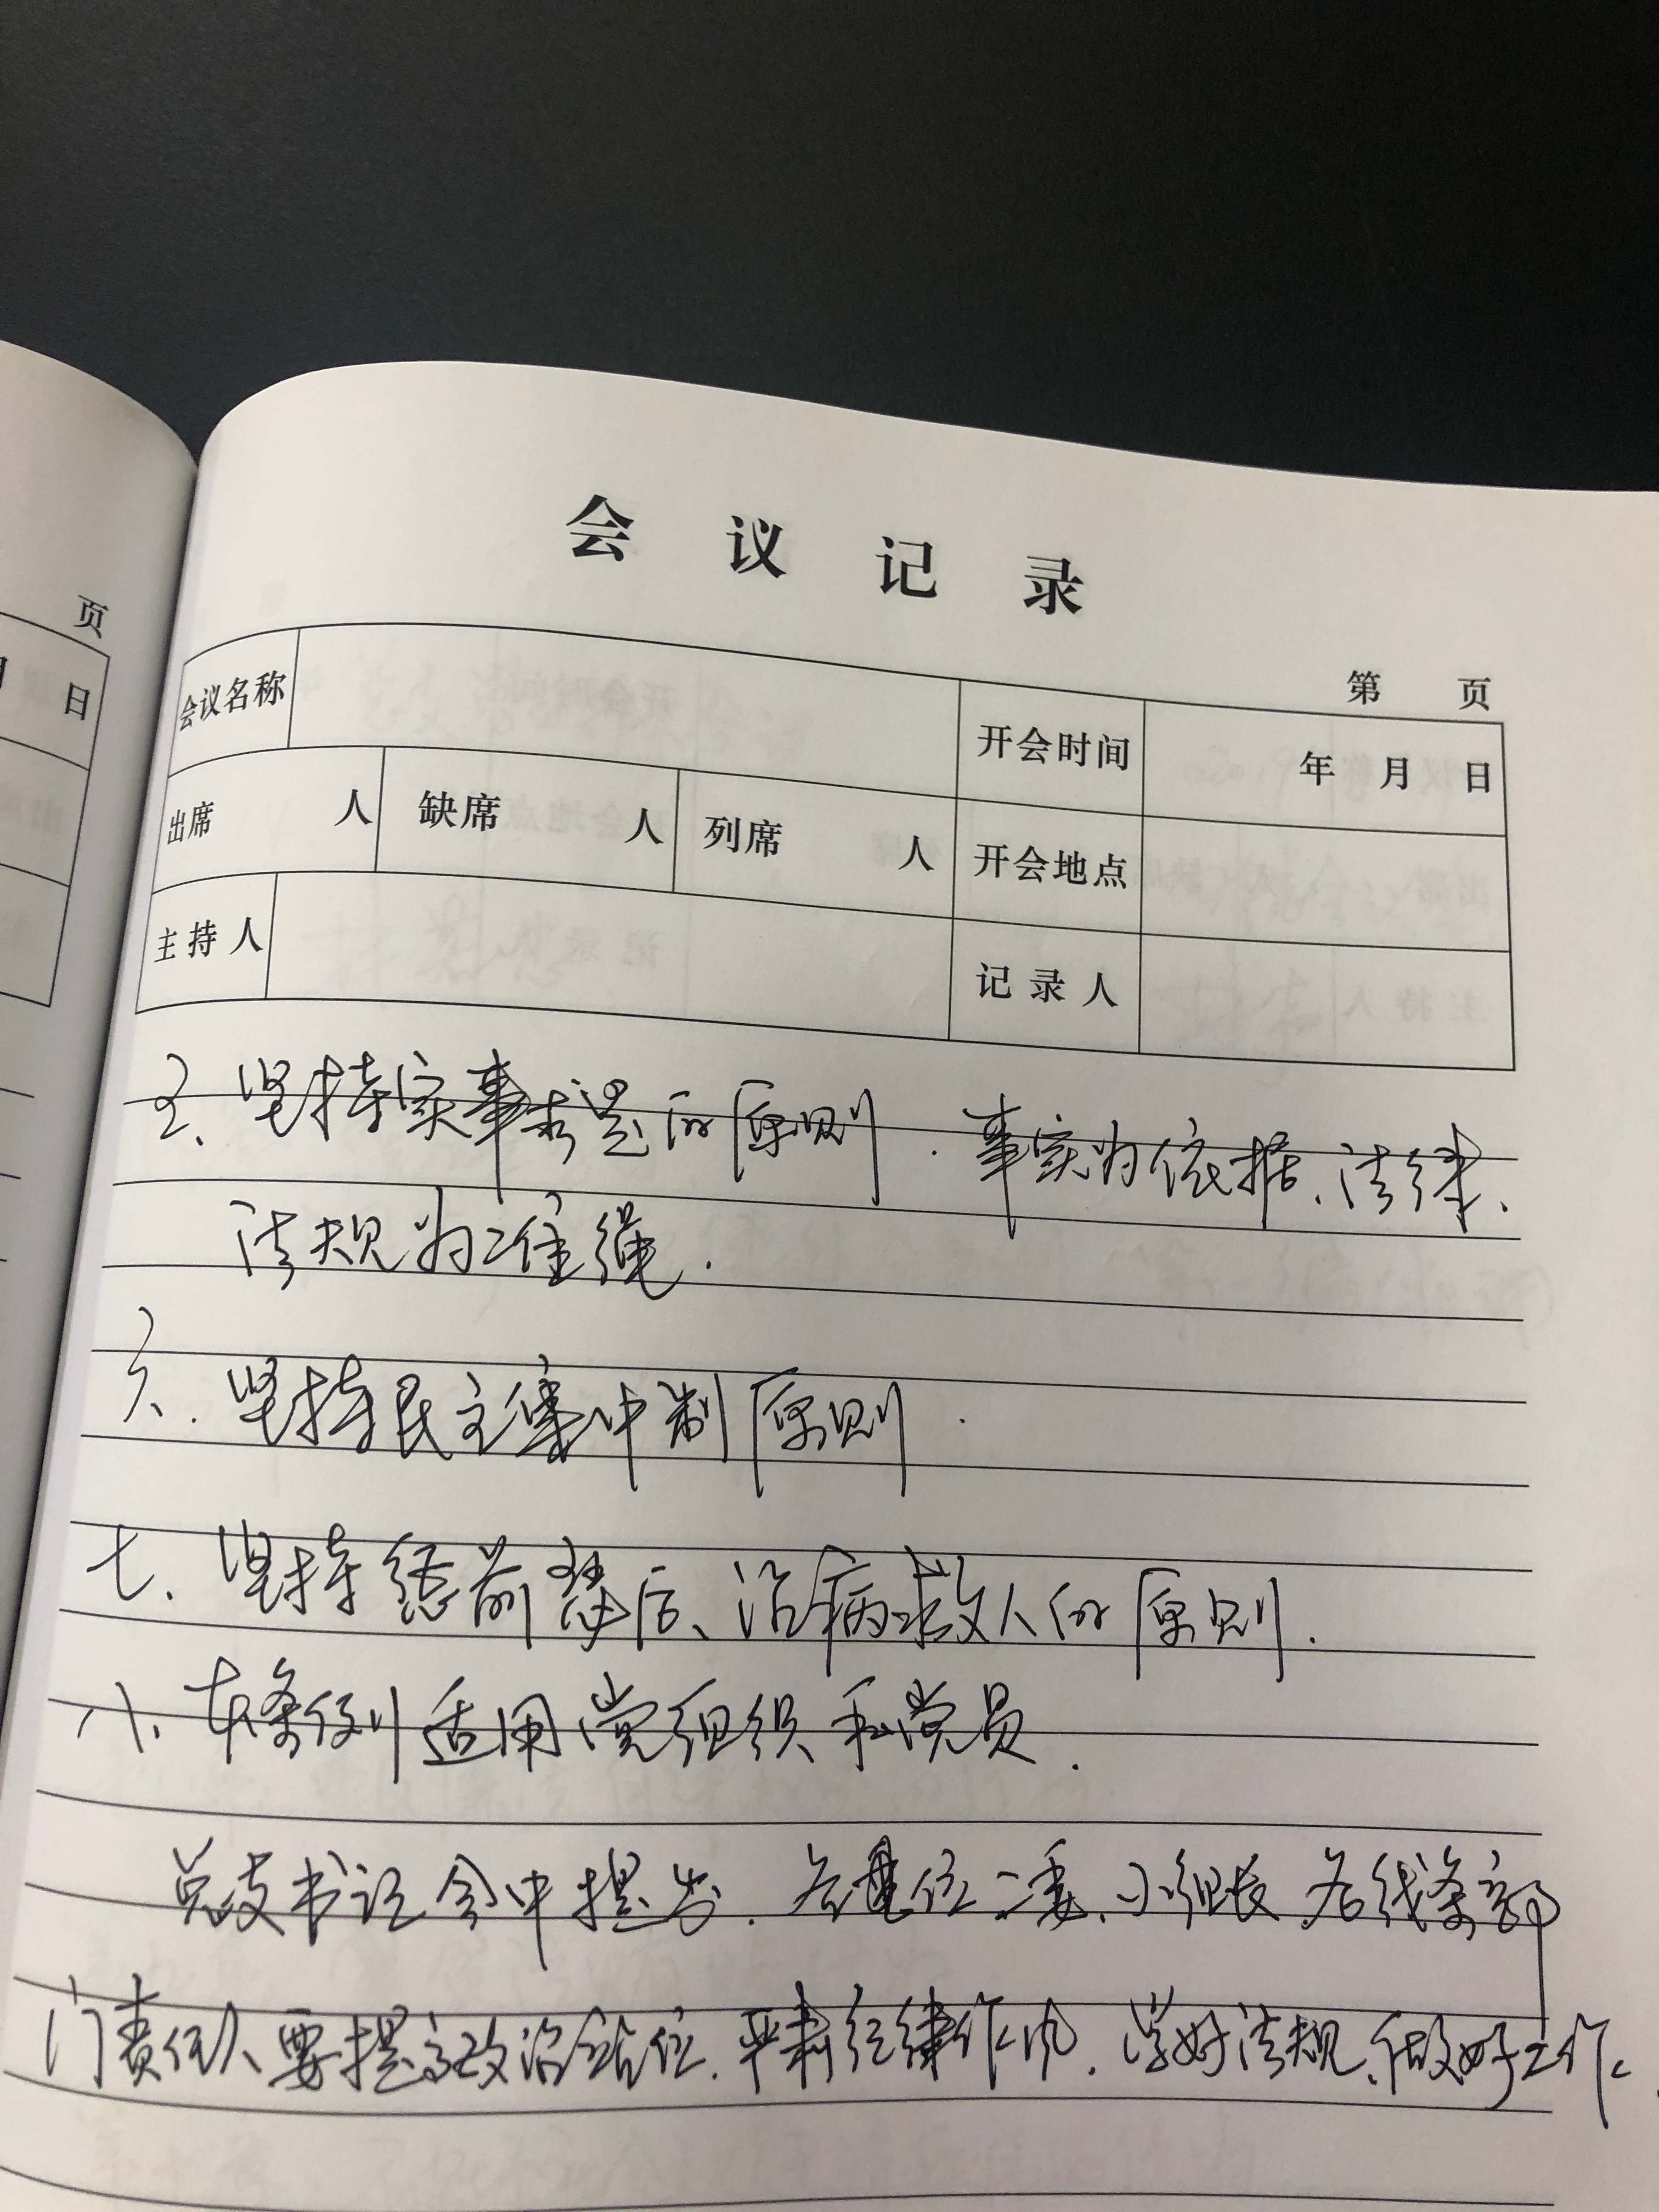 页
月 日
会议记录
第 页
会议名称 开会时间 年 月 日
出席 人 缺席 人 列席 人 开会地点
主持人 记录人
五、坚持实事求是的原则.事实为依据、法律、
法规为准绳.
六.坚持民主集中制原则.
七、坚持惩前毖后、治病救人的原则.
八、本条例适用党组织和党员.
总支书记会中提出.各单位二委、小组长、各线条部
门责任人、要提高政治站位.严肃纪律作风.学好法规、做好工作.